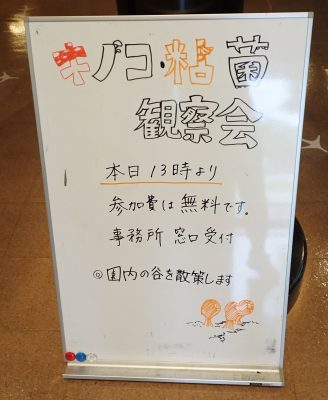 キノコ・粘菌
観察会
本日 13時より
参加費は無料です。
事務所 窓口受付
◎園内の谷を散策します